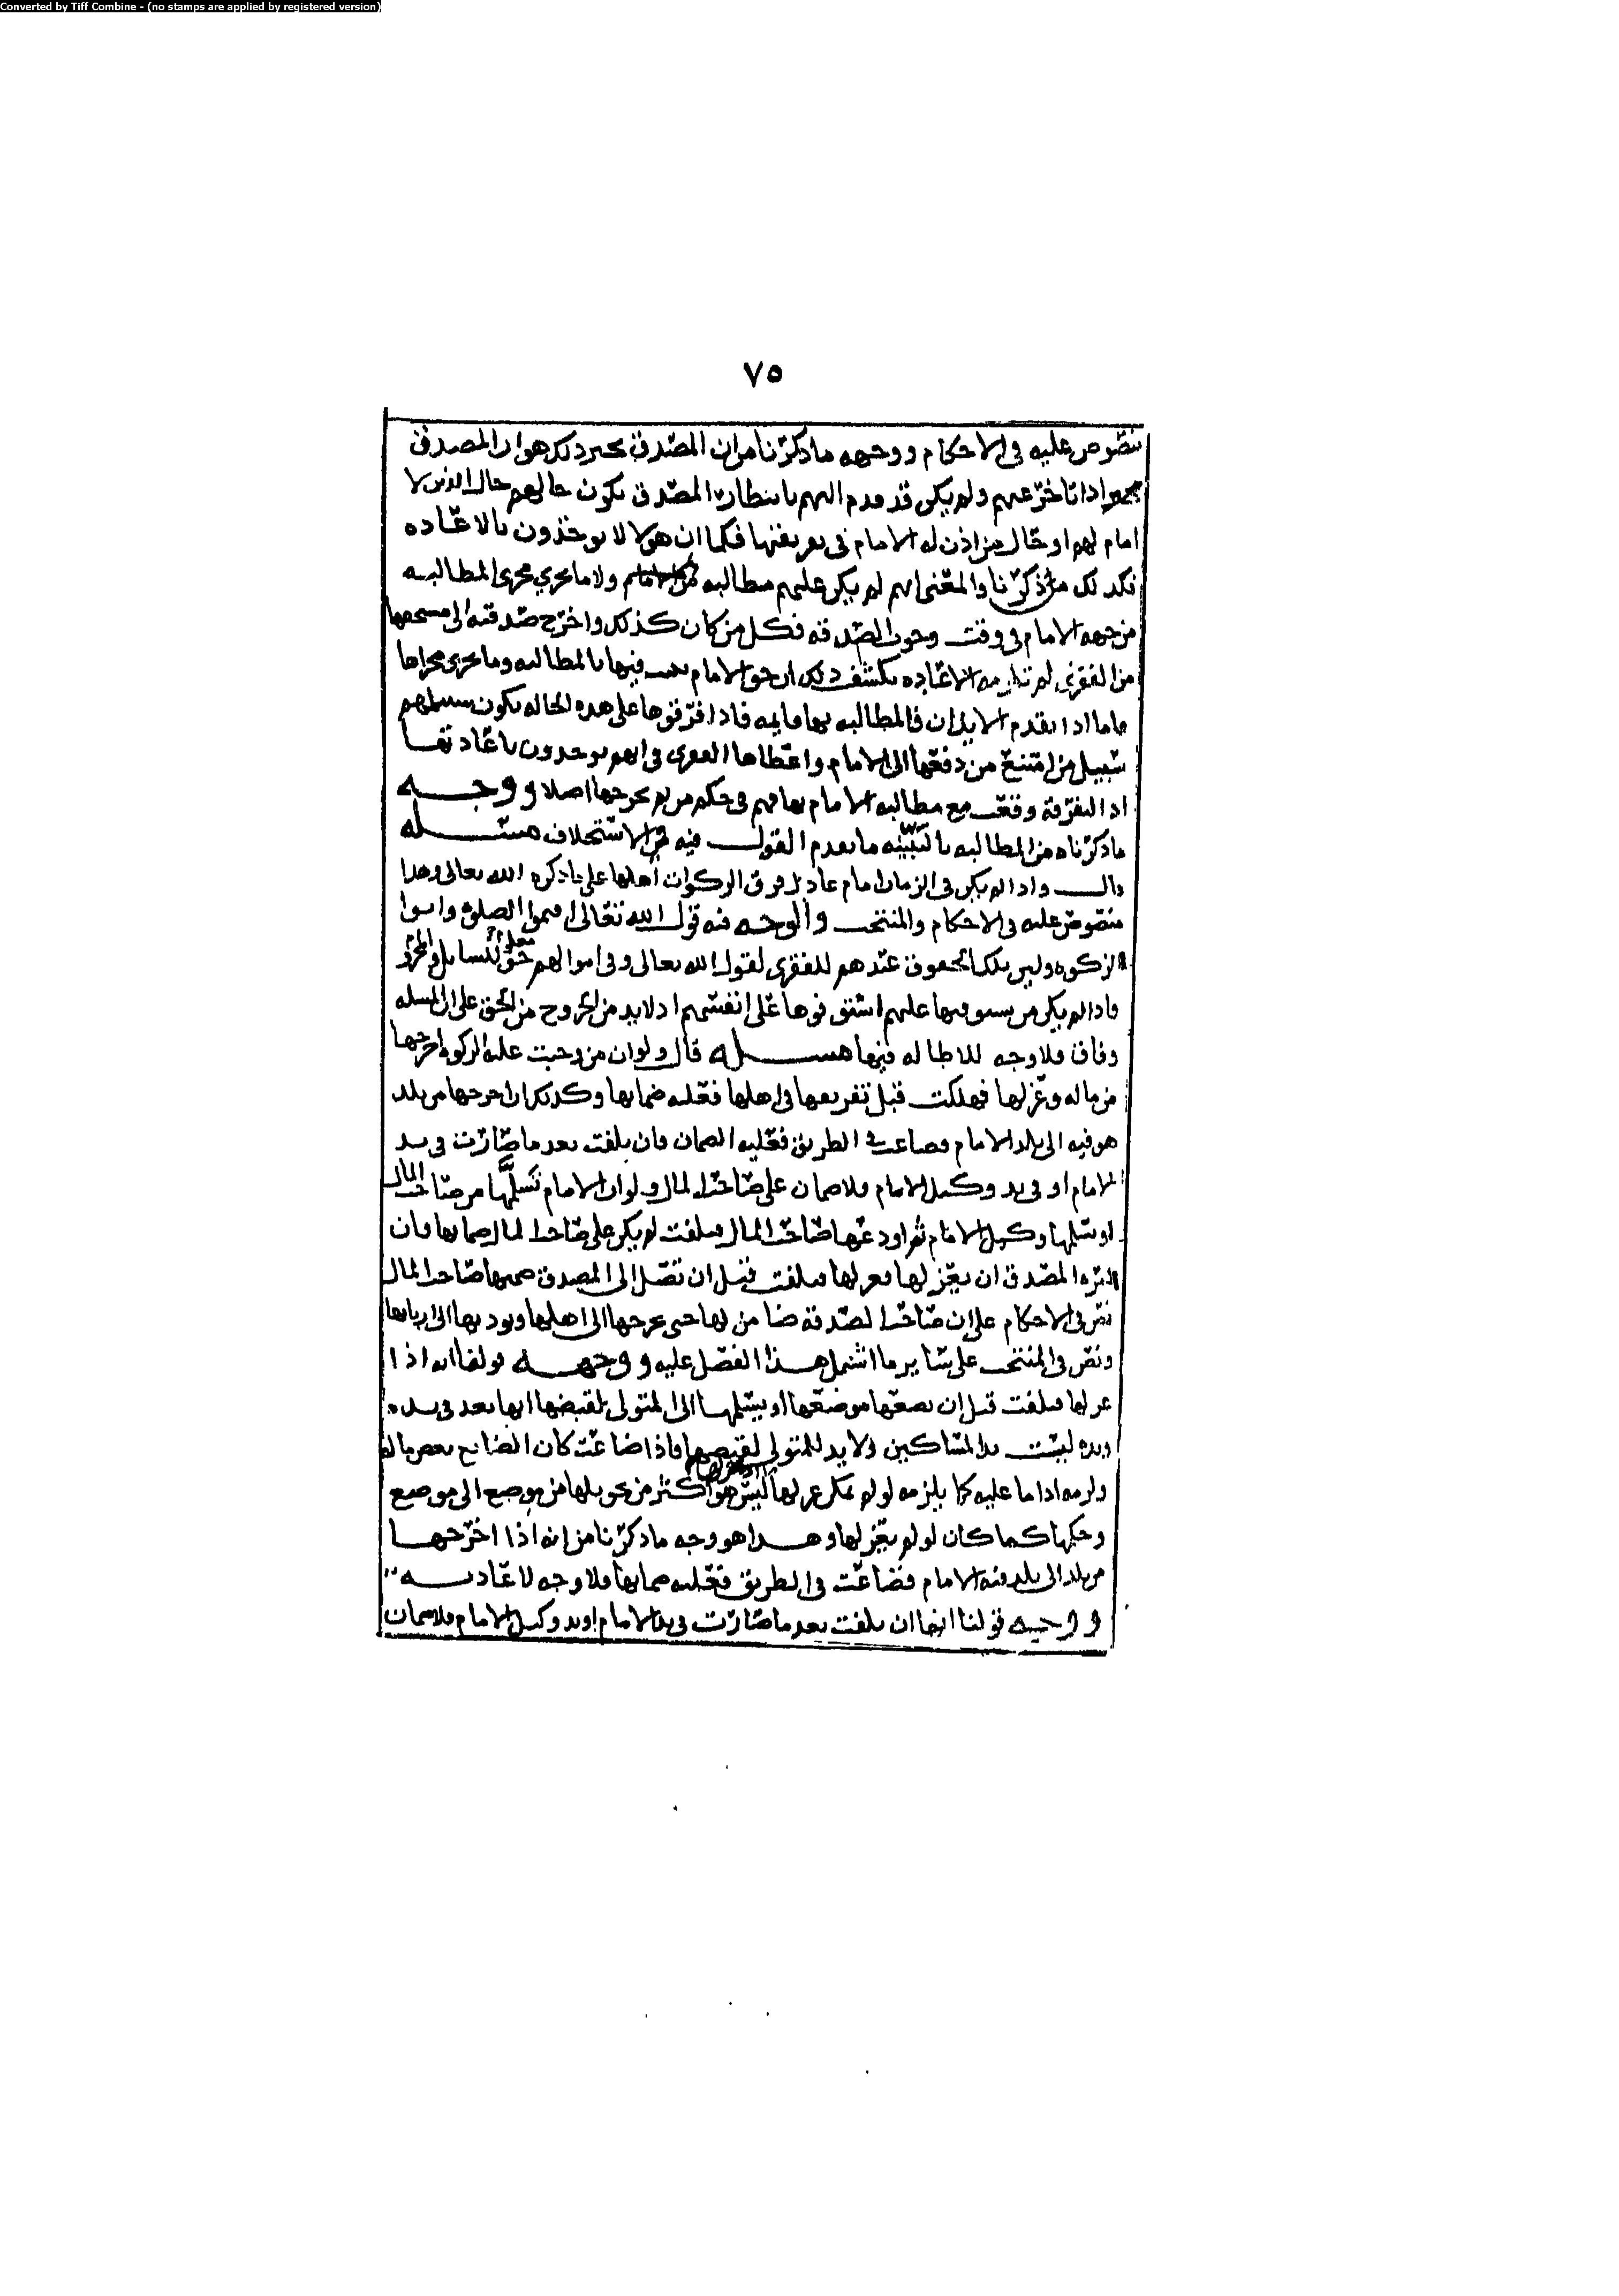 Converted by Tiff Combine - (no stamps are applied by registered version)
٧٥
منصوص عليه في الاحكام ووجهه ما ذكرنا من ان المصدق يخبر وذلك هو ان المصدق
اذا تاخر عنهم ولم يكن قد تقدم اليهم بانتظار المصدق يكون حالهم حال الذين لا
امام لهم او حال من اذن له الامام في تفريقها فكما ان هولا لا يوخذون بالاعاده
فكذلك من ذكرنا والمعنى انهم لم يكن عليهم مطالبه من الامام ولا ما يجري مجرى المطالبه
من جهه الامام في وقت وجوب الصدقه فكل من كان كذلك واخرج صدقته الى مستحقها
من الفقرى لم تلزمه الاعاده يكشف ذلك ان حق الامام يثبت فيها بالمطالبه وما يجري مجراها
فاما اذا تقدم الايذان فالمطالبه بها قايمه فاذا فرقوها على هذه الحاله يكون سبيلهم
سبيل من امتنع من دفعها الى الامام واعطاها الفقرى في انهم يوخذون باعادتها
اذ التفرقة وقعت مع مطالبه الامام بها فهم في حكم من لم يخرجها اصلا ووجه
ما ذكرناه من المطالبه بالبينه ما تقدم القول فيه من الاستحلاف مسئله
قال واذا لم يكن في الزمان امام عادل فرق الزكوات اهلها على ما ذكره الله تعالى وهذا
منصوص عليه في الاحكام والمنتخب والوجه فيه قول الله تعالى اقيموا الصلوة واتوا
الزكوه وليس تلك الحقوق عندهم للفقرى لقول الله تعالى وفي اموالهم حق معلوم للسايل والمحروم
فاذا لم يكن من يستوفيها عليهم استوفوها على انفسهم اذ لا بد من الخروج من الحق على ان المسله
وفاق فلا وجه للاطاله فيها مسئله قال ولو ان من وجبت عليه الزكوه اخرجها
من ماله وعزلها فهلكت قبل تفريقها في اهلها فعليه ضمانها وكذلك ان اخرجها من بلد
هو فيه الى بلد الامام فضاعت في الطريق فعليه الضمان فان تلفت بعد ما صارت في يد
الامام او في يد وكيل الامام فلا ضمان على صاحب المال ولو ان الامام تسلمها من صاحب المال
او تسلمها وكيل الامام ثم اودعها صاحب المال فتلفت لم يكن على صاحب المال ضمانها فان
امره المصدق ان يعزلها فعزلها فتلفت قبل ان تصل الى المصدق ضمنها صاحب المال
نص في الاحكام على ان صاحب الصدقة ضامن لها حتى يخرجها الى اهلها ويوديها الى اربابها
ونص في المنتخب على ساير ما اشتمل هذا الفصل عليه ووجه قولنا انه اذا
عزلها فتلفت قبل ان يضعها موضعها او يسلمها الى المتولي لقبضها انها بعد في يده
ويده ليست يد المساكين ولا يد للمتولي لقبضها فاذا ضاعت كان الضايع بعض ماله
ولزمه ادا ما عليه كما يلزمه لو لم يكن عزلها اذ عزلها ليس هو اكثر من تحويلها من موضع الى موضع
وحكمها كما كان لو لم يعزلها وهذا هو وجه ما ذكرنا من انه اذا اخرجها
من بلد الى بلد فيه الامام فضاعت في الطريق فعليه ضمانها فلا وجه لاعادته
ووجه قولنا انها ان تلفت بعد ما صارت في يد الامام او يد وكيل الامام فلا ضمان